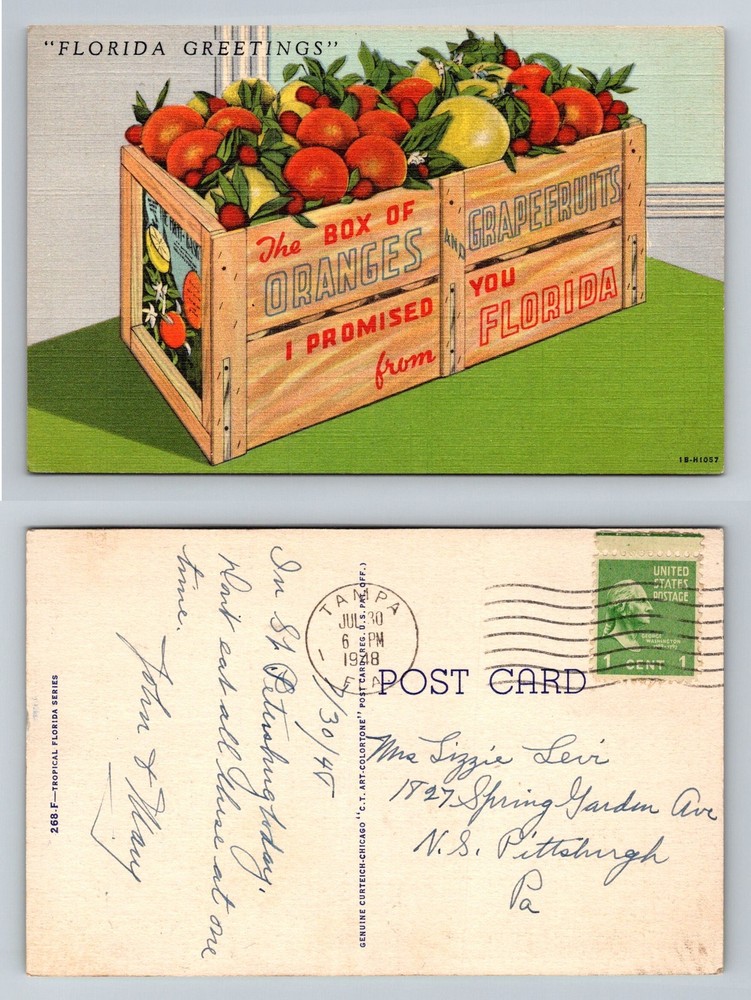 "FLORIDA GREETINGS"
The BOX OF
ORANGES
AND
GRAPEFRUITS
I PROMISED
YOU
from
FLORIDA
1B-H1057
TAMPA
JUL 30
6 PM
1948
UNITED
STATES
POSTAGE
GEORGE
WASHINGTON
1 CENT 1
POST CARD
7/30/48
In St. Petersburg today.
Don't eat all these at one
time.
John & Mary
Mrs Lizzie Levi
1827 Spring Garden Ave
N.S. Pittsburgh
Pa
268-F—TROPICAL FLORIDA SERIES
GENUINE CURTEICH-CHICAGO "C.T. ART-COLORTONE" POST CARD (REG. U.S. PAT. OFF.)